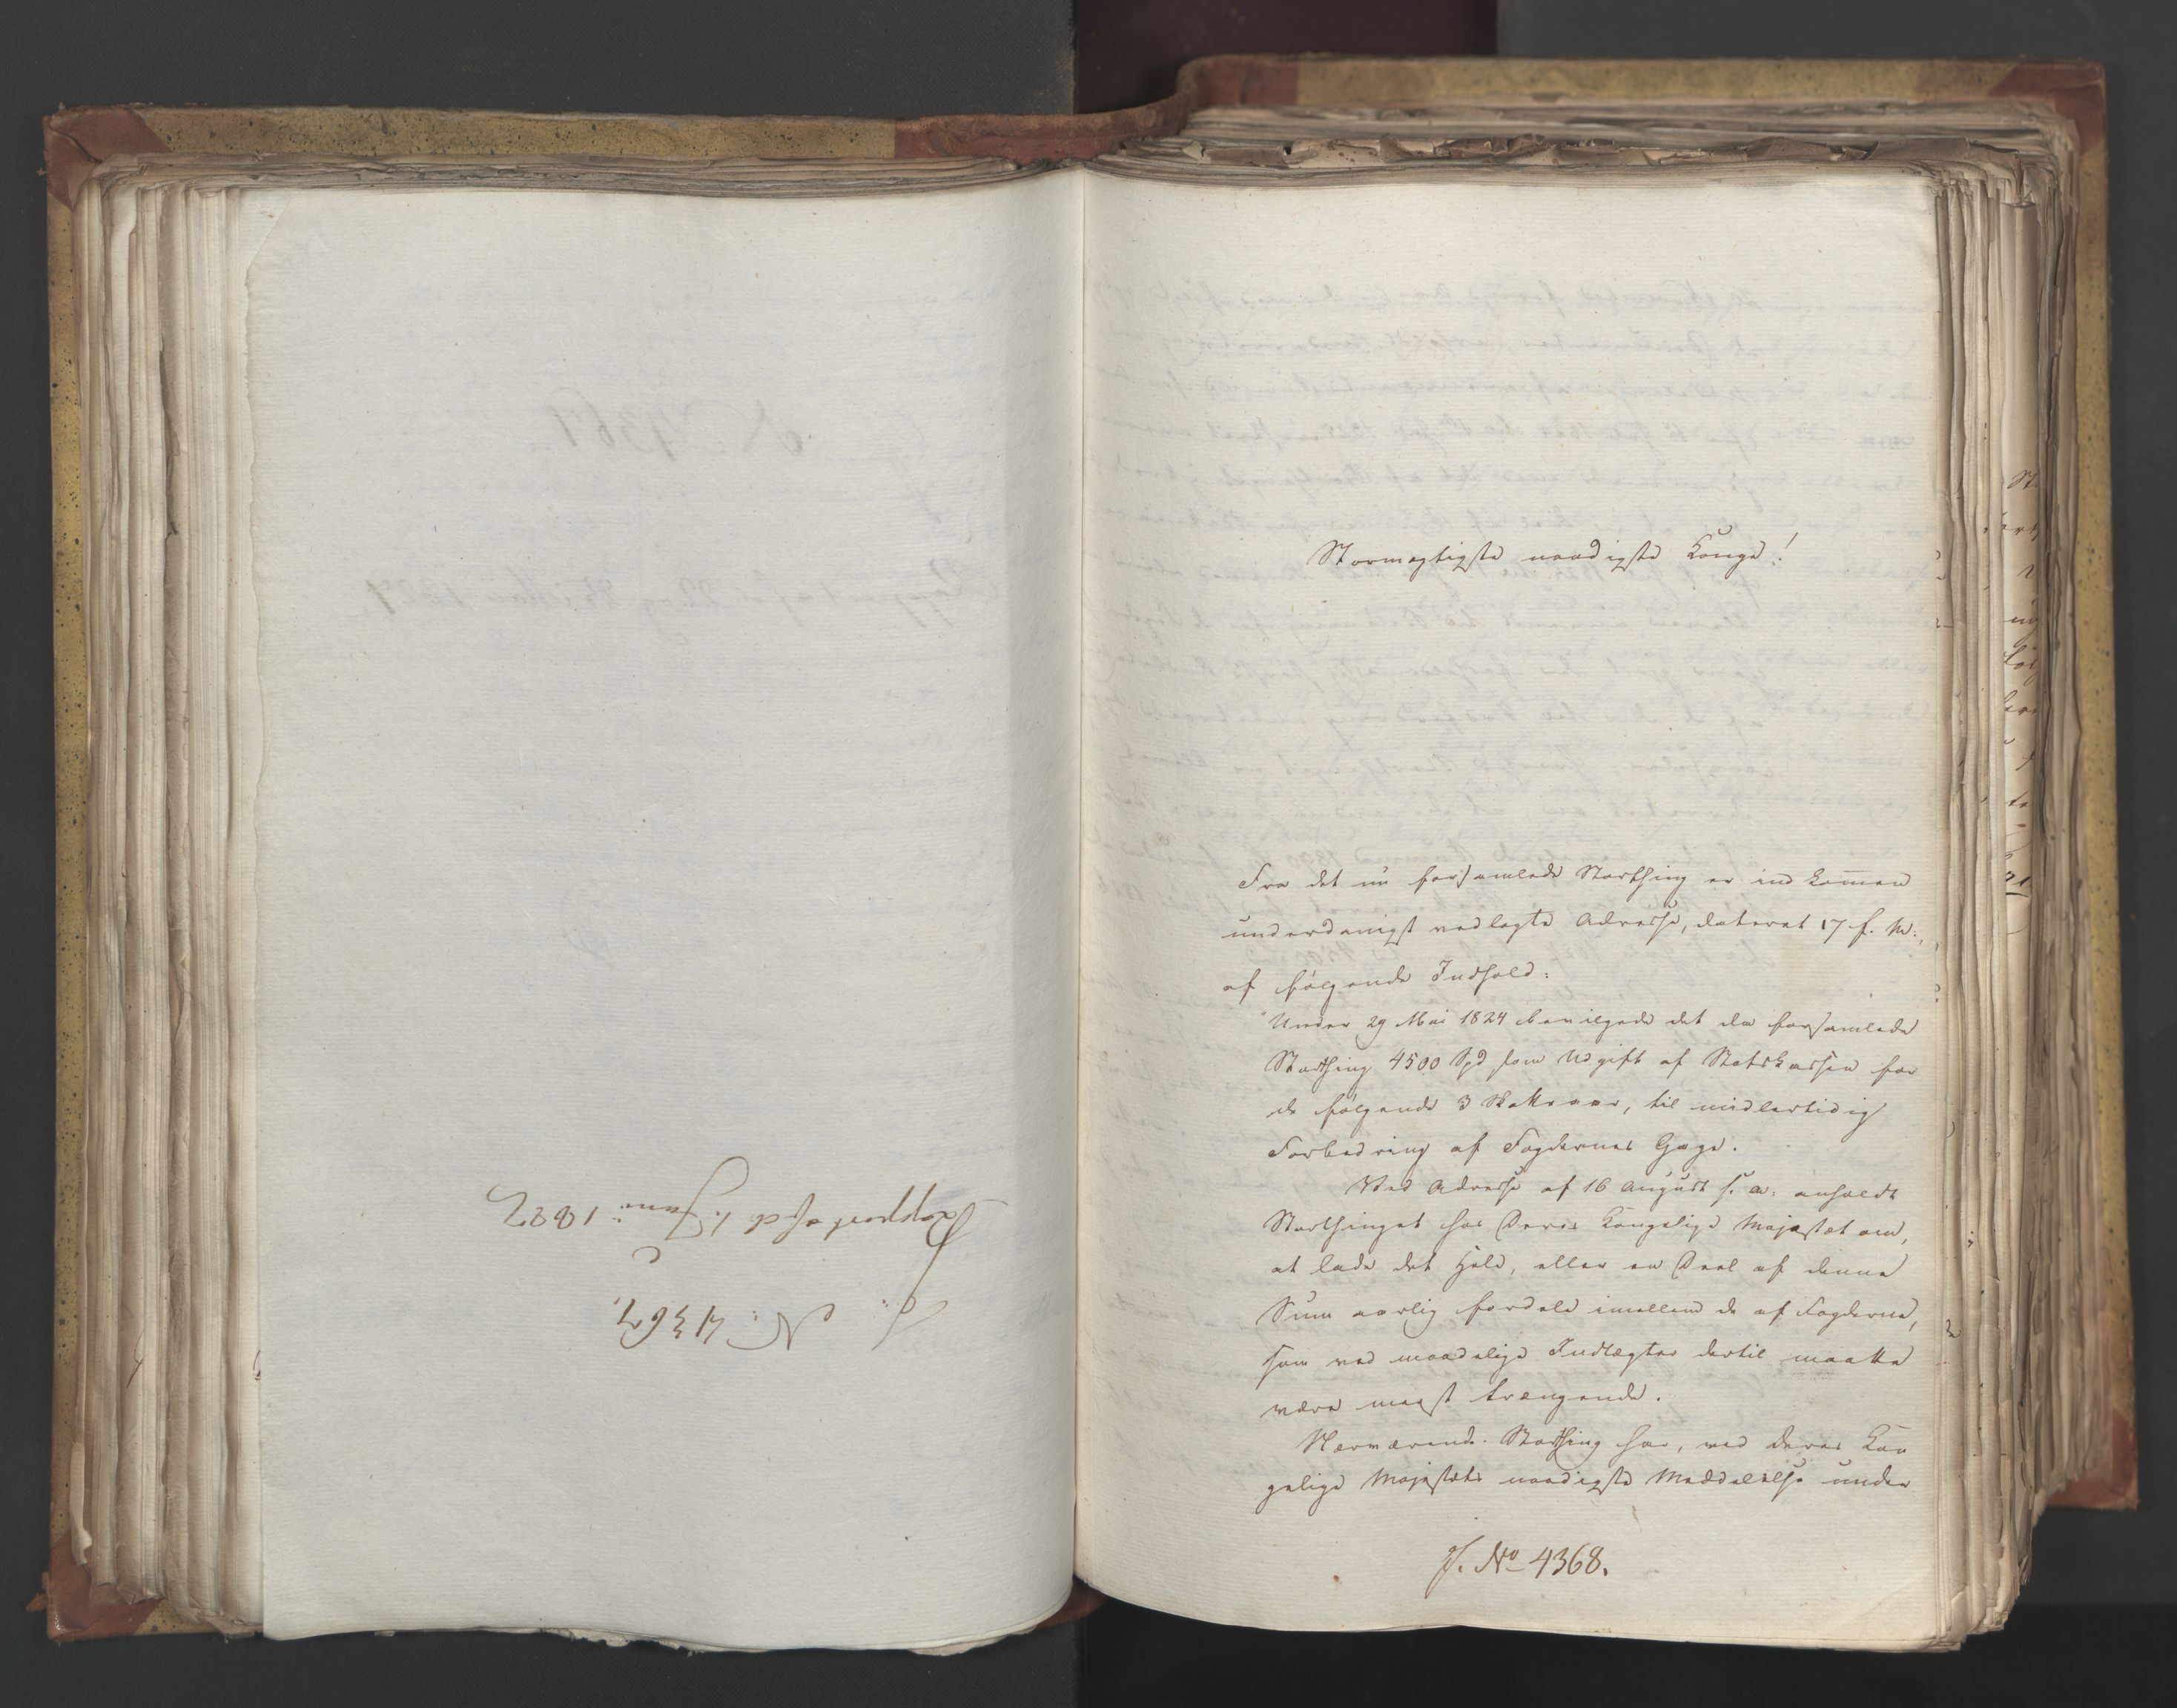 J. No: 4367.
Rapport af d. 1. Juni 1827
Stormægtigste naadigste Konge!
Fra det nu forsamlede Storthing er indkommen
underdanigst vedlagte Adresse, dateret 17 f. M.,
af følgende Indhold:
"Under 29 Mai 1824 bevilgede det da forsamlede
Storthing 4500 Spd som Udgift af Statskassen for
de følgende 3 Skatteaar, til midlertidig
Forbedring af Fogdernes Gage.
Ved Adresse af 16 August s. A. anholdt
Storthinget hos Deres Kongelige Majestæt om,
at lade det Hele, eller en Deel af denne
Sum aarlig fordele imellem de af Fogderne,
som ved maadelige Indtægter dertil maatte
være meest trængende.
Nærværende Storthing har, ved Deres Kon
gelige Majestæts naadigste Meddelelse under
J. No 4368.